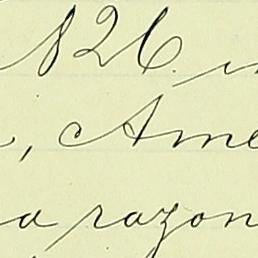 1826.
, Ame
a razon